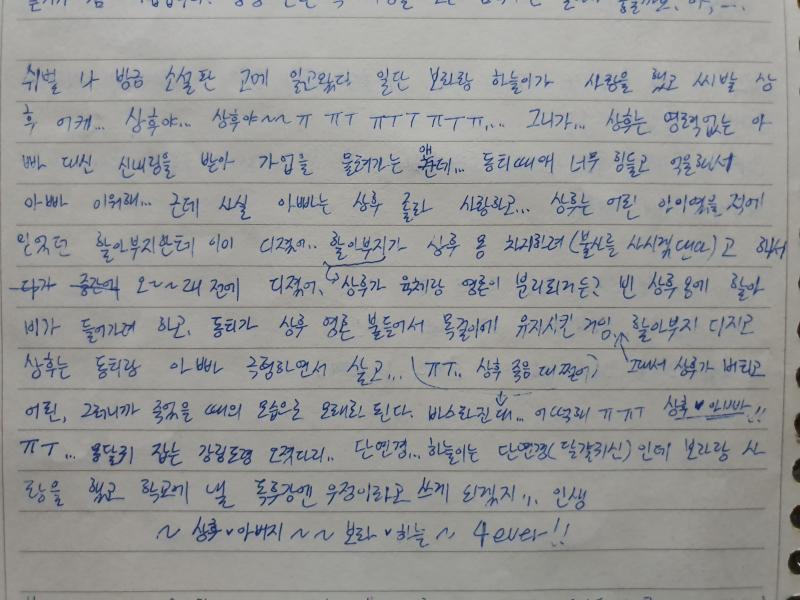 쉬벌 나 방금 소설판 고메 읽고왔다 일단 보라랑 하늘이가 사랑을 했고 씨발 상
후 어케... 상후야... 상후야~~ ㅠ ㅠㅜ ㅠㅜㅜ ㅠㅜㅠ,... 그니까... 상후는 영력없는 아
빠 대신 신내림을 받아 가업을 물려가는 앤데... 동티때매 너무 힘들고 억울해서
아빠 미워해... 근데 사실 아빠는 상후 졸라 사랑하고... 상후는 어린 임이었을 적에
믿었던 할아부지한테 이미 디졌어.. 할아부지가 상후 몸 차지하려(불사를 사시겠댄다)고 해서
오~~래 전에 디졌어, 상후가 육체랑 영혼이 분리되거든? 빈 상후 몸에 할아
비가 들어가려 하고, 동티가 상후 영혼 붙들어서 목걸이에 유지시킨 거임, 할아부지 디지고
상후는 동티랑 아빠 극혐하면서 살고... (ㅠㅜ.. 상후 죽음 때 쩔어) 그래서 상후가 버티고
어린, 그러니까 죽었을 때의 모습으로 오래는 된다. 바스라진대... 어떡해 ㅠㅠㅜ 상후♥아빠!!
ㅠㅜ... 몽달귀 잡는 강림도령 오졌다리.. 단연경... 하늘이는 단연경(달걀귀신)인데 보라랑 사
랑을 했고 학교에 낼 독후감엔 우정이라고 쓰게 되겠지,,, 인생
~ 상후♥아버지 ~ ~ 보라♥하늘 ~ 4ever!!